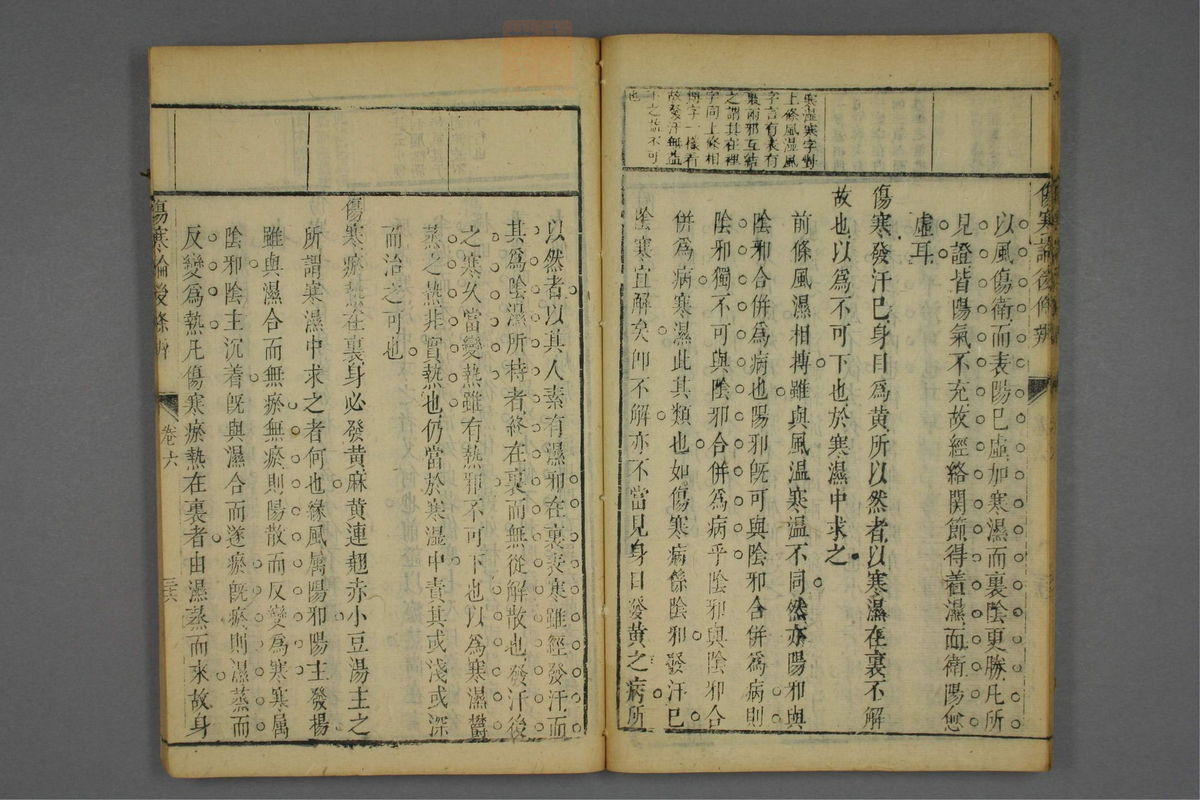 傷寒論後條辨
寒濕寒字對
上條風濕風
字言有表有
裏兩邪互結
之謂其在裡
字同上條相
搏字一樣看
故發汗無益
之不可
也
以風傷衛而表陽已虛加寒濕而裏陰更勝凡所
見證皆陽氣不充故經絡関節得着濕而衛陽愈
虛耳
傷寒發汗已身目爲黃所以然者以寒濕在裏不解
故也以爲不可下也於寒濕中求之
前條風濕相搏雖與風温寒温不同然亦陽邪與
陰邪合併爲病也陽邪旣可與陰邪合併爲病則
陰邪獨不可與陰邪合併爲病乎陰邪與陰邪合
併爲病寒濕此其類也如傷寒病係陰邪發汗已
陰寒宜解矣卽不解亦不當見身目發黃之病所
以然者以其人素有濕邪在裏表寒雖經發汗而
其爲陰濕所持者終在裏而無從解散也發汗後
之寒久當變熱雖有熱邪不可下也以爲寒濕鬱
蒸之熱非實熱也仍當於寒濕中責其或淺或深
而治之可也
傷寒瘀熱在裏身必發黃麻黃連翹赤小豆湯主之
所謂寒濕中求之者何也緣風属陽邪陽主發揚
雖與濕合而無瘀無瘀則陽散而反變爲寒寒属
陰邪陰主沉着旣與濕合而遂瘀旣瘀則濕蒸而
反變爲熱凡傷寒瘀熱在裏者由濕蒸而來故身
傷寒論後條辨
卷六